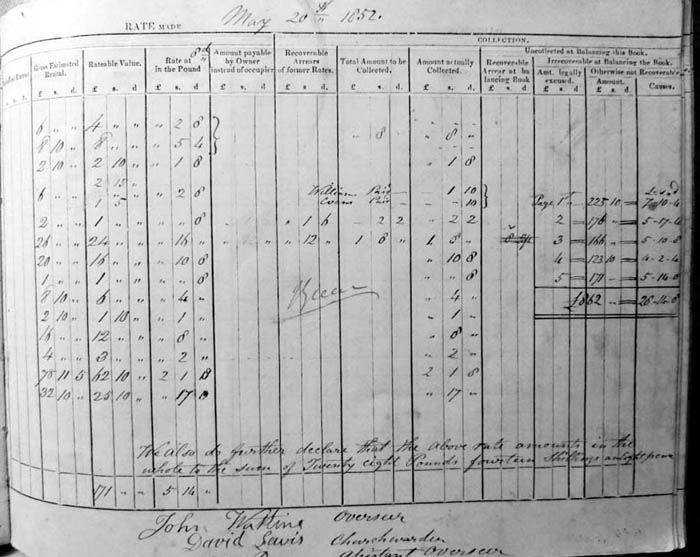 RATE MADE May 20th 1852.
COLLECTION.
Gross Estimated Rental. Rateable Value. Rate at 8d in the Pound Amount payable by Owner instead of occupier Recoverable Arrears of former Rates. Total Amount to be Collected. Amount actually Collected. Recoverable Arrear at balancing Book Uncollected at Balancing this Book.
Irrecoverable at Balancing the Book.
Amt. legally excused. Otherwise not Recoverable
Amount. Causes.
£ s. d. £ s. d. £ s. d. £ s. d. £ s. d. £ s. d. £ s. d. £ s. d. £ s. d. £ s. d.
6 " " 4 " " " 2 8 - - -
8 10 " 8 " " " 5 4 " 8 " " 8 "
2 10 " 2 10 " " 1 8 " 1 8
2 15 "
6 " " 1 5 " 2 8 William Paid - " 1 10
Evans Paid - - 10 Page 1st 225 10 7-10-4
2 " " 1 " " " " 8 " 1 6 - 2 2 " 2 2 2 = 176 " 5-17-4
26 " " 24 " " " 16 " " " " " 12 " 1 8 " 1 8 " 3 = 166 " 5-10-8
20 " " 16 " " " 10 8 " 10 8 4 = 123 10 4-2-4
1 " " 1 " " " " 8 " " 8 5 = 171 " 5-14-0
8 10 " 6 " " " 4 " " 4 " £862 " 28-14-8
2 10 " 1 10 " " 1 " " 1 "
16 " " 12 " " " 8 " " 8 "
4 " " 3 " " " 2 " " 2 "
78 11 5 62 10 " 2 1 8 2 1 8
32 10 " 25 10 " " 17 0 " 17 "
We also do further declare that the above rate amounts in the
whole to the sum of Twenty eight Pounds fourteen Shillings and eight pence
171 " " 5 14 "
John Watkins Overseer
David Lewis Churchwarden
Assistant Overseer